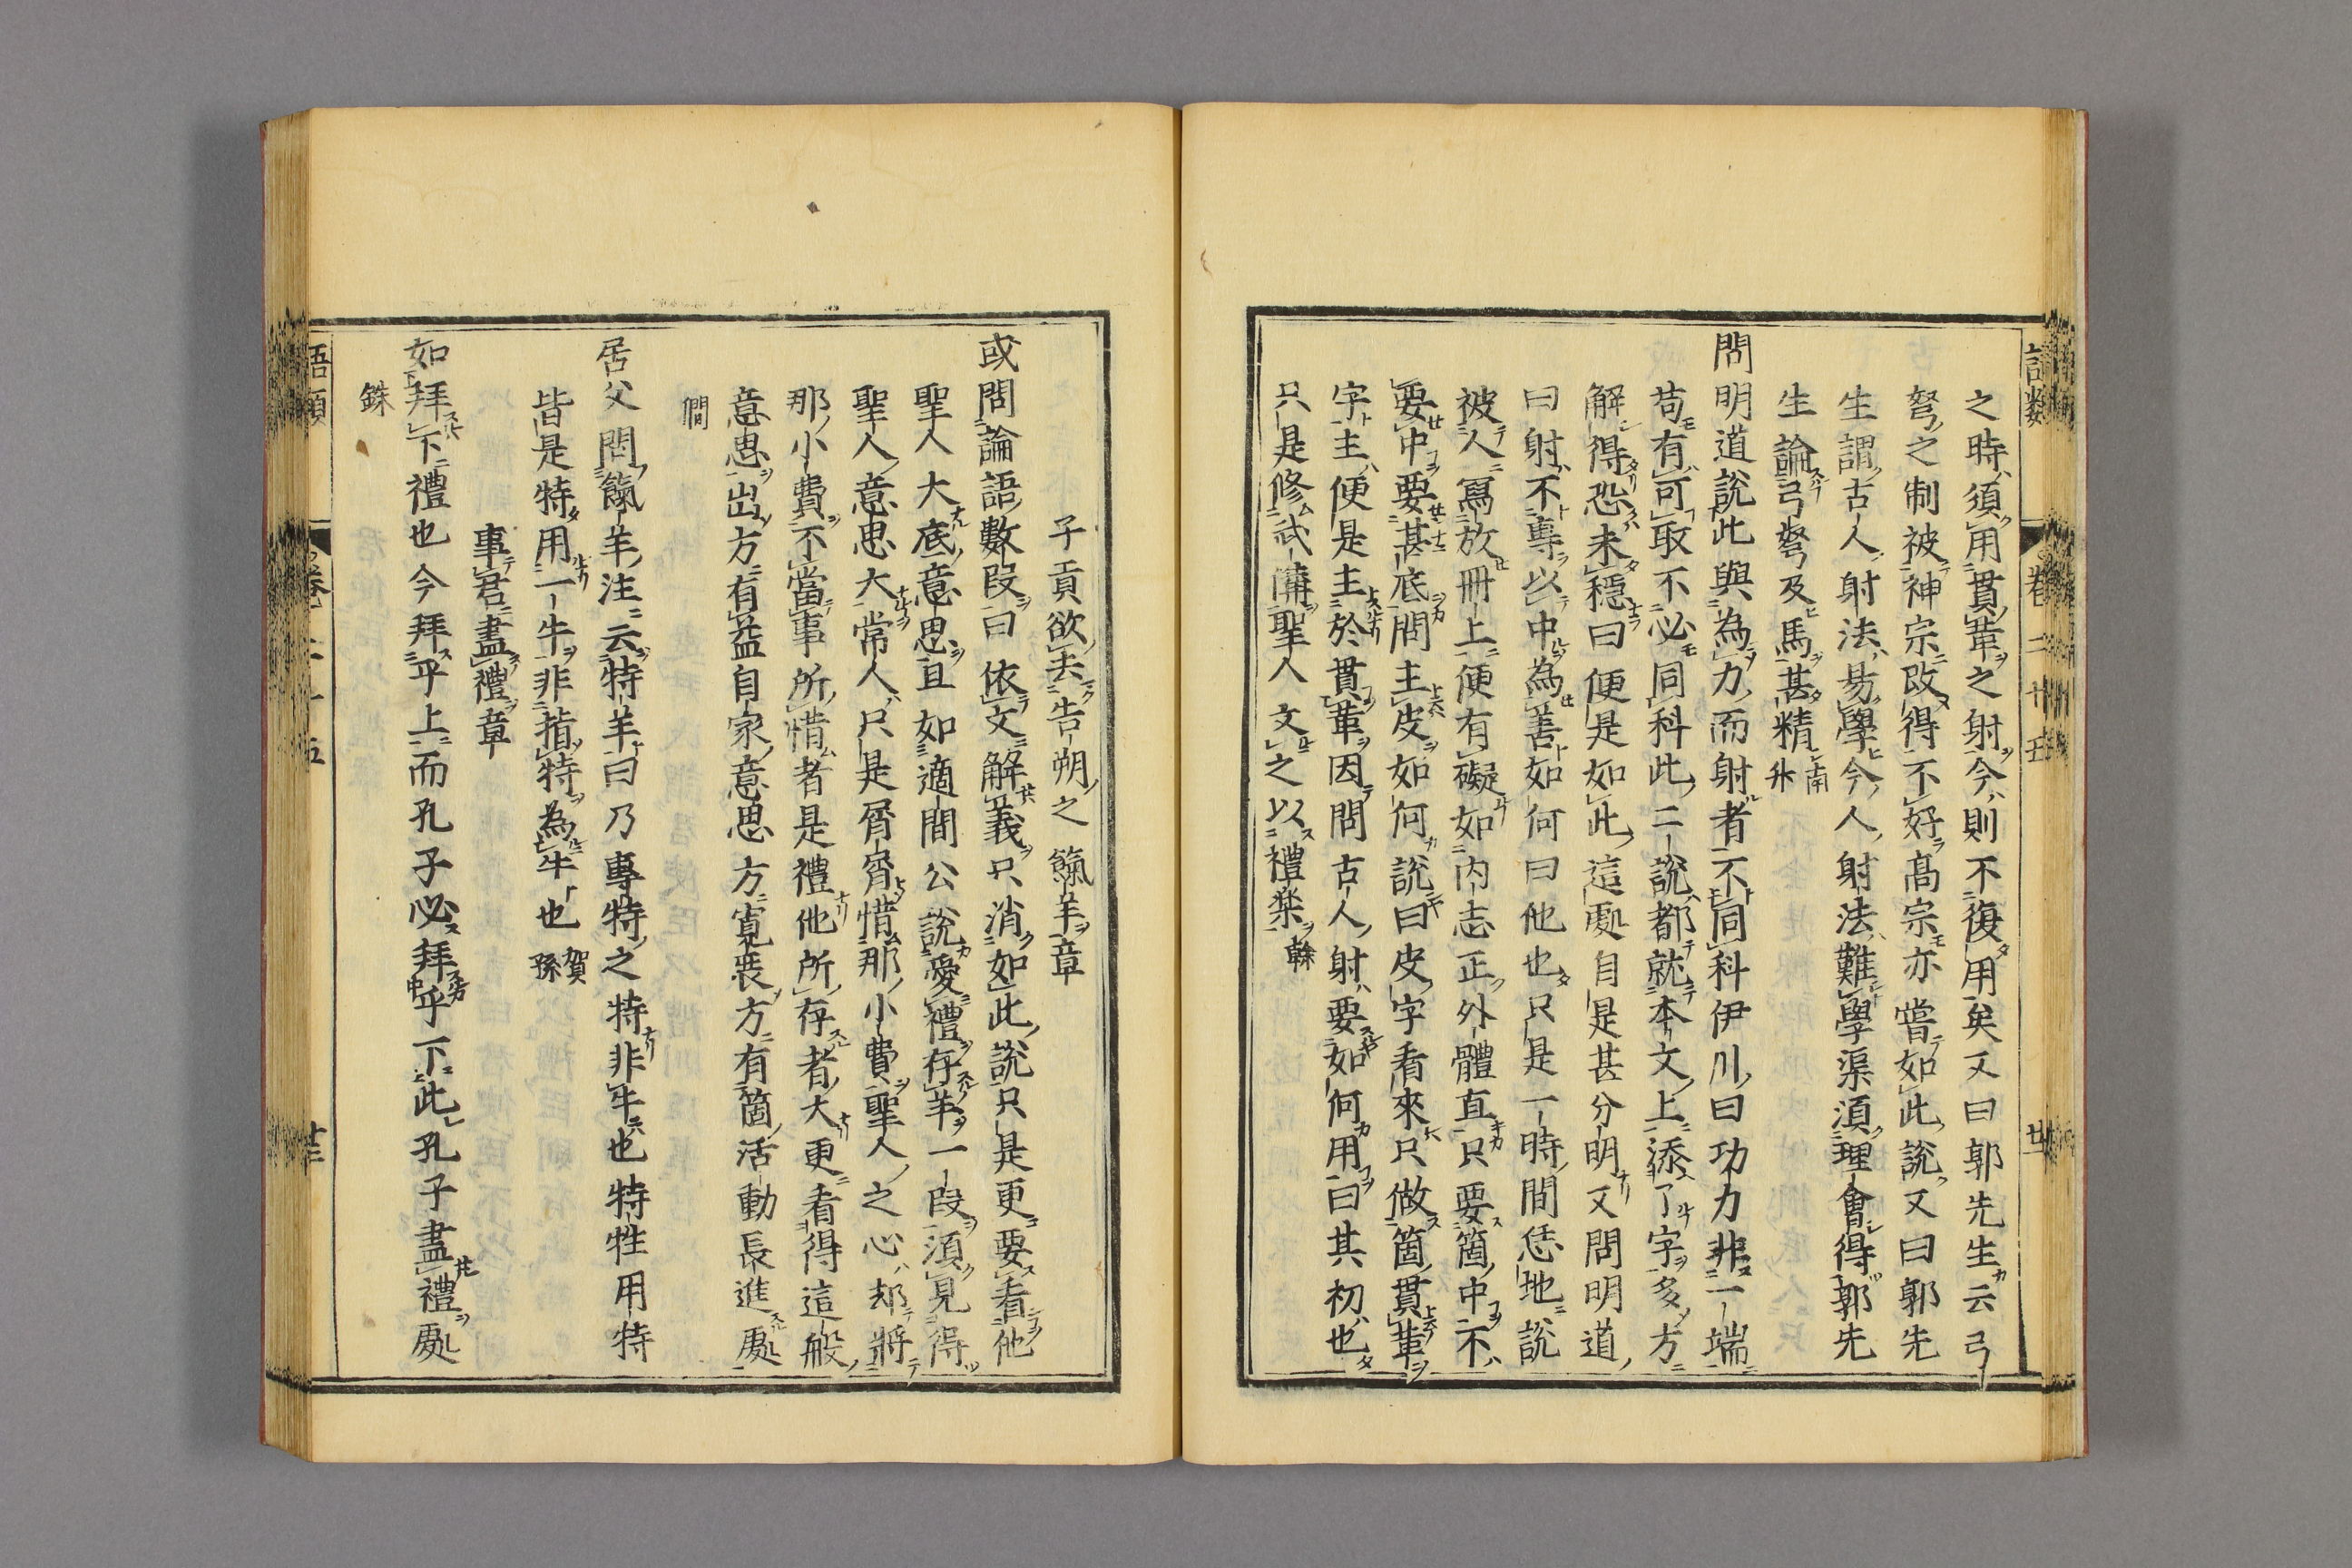 之時須用貫革之射今則不復用矣又曰郭先生云弓
弩之制被神宗改得不好高宗亦嘗如此説又曰郭先
生謂古人射法易學今人射法難學渠須理會得郭先
生論弓弩及馬甚精南升
問明道説此與為力而射者不同科伊川曰功力非一端
苟有可取不必同科此二説都就本文上添了字多方
解得恐未穩曰便是如此這處自是甚分明又問明道
曰射不專以中為善如何曰他也只是一時間恁地説
被人寫放冊上便有礙如内志正外體直只要箇中不
要中要甚底問主皮如何説曰皮字看來只做箇貫革
字主便是主於貫革因問古人射要如何用曰其初也
只是修武備聖人文之以禮樂榦
子貢欲去告朔之餼羊章
或問論語數段曰依文解義只消如此説只是更要看他
聖人大底意思且如適間公説愛禮存羊一段須見得
聖人意思大常人只是屑屑惜那小費聖人之心却將
那小費不當事所惜者是禮他所存者大更看得這般
意思出方有益自家意思方寛裏方有箇活動長進處
僩
居父問餼羊注云特羊曰乃專特之特非牛也特牲用特
皆是特用一牛非指特為牛也賀孫
事君盡禮章
如拜下禮也今拜乎上而孔子必拜乎下此孔子盡禮處
銖
語類
卷二十五